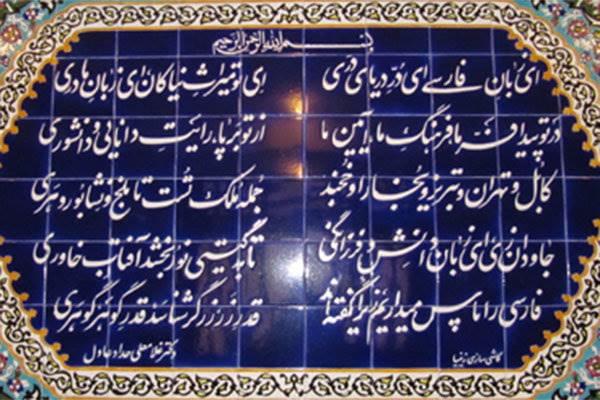 بسم الله الرحمن الرحیم
ای زبان فارسی ای دُرّ دریای دری ای تو میراث نیاکان ای زبان مادری
در تو پیدا فرّ ما فرهنگ ما آیین ما از تو برپا رایت دانایی و دانشوری
کابل و تهران و تبریز و بخارا و خجند جمله ملک تست تا بلخ و نشابور و هری
جاودان زی ای زبان دانش و فرزانگی تا به گیتی نور بخشد آفتاب خاوری
فارسی را پاس میداریم زیرا گفته‌اند قدر زر زرگر شناسد قدر گوهر گوهری
کاشی سازی زیبا دکتر غلامعلی حداد عادل